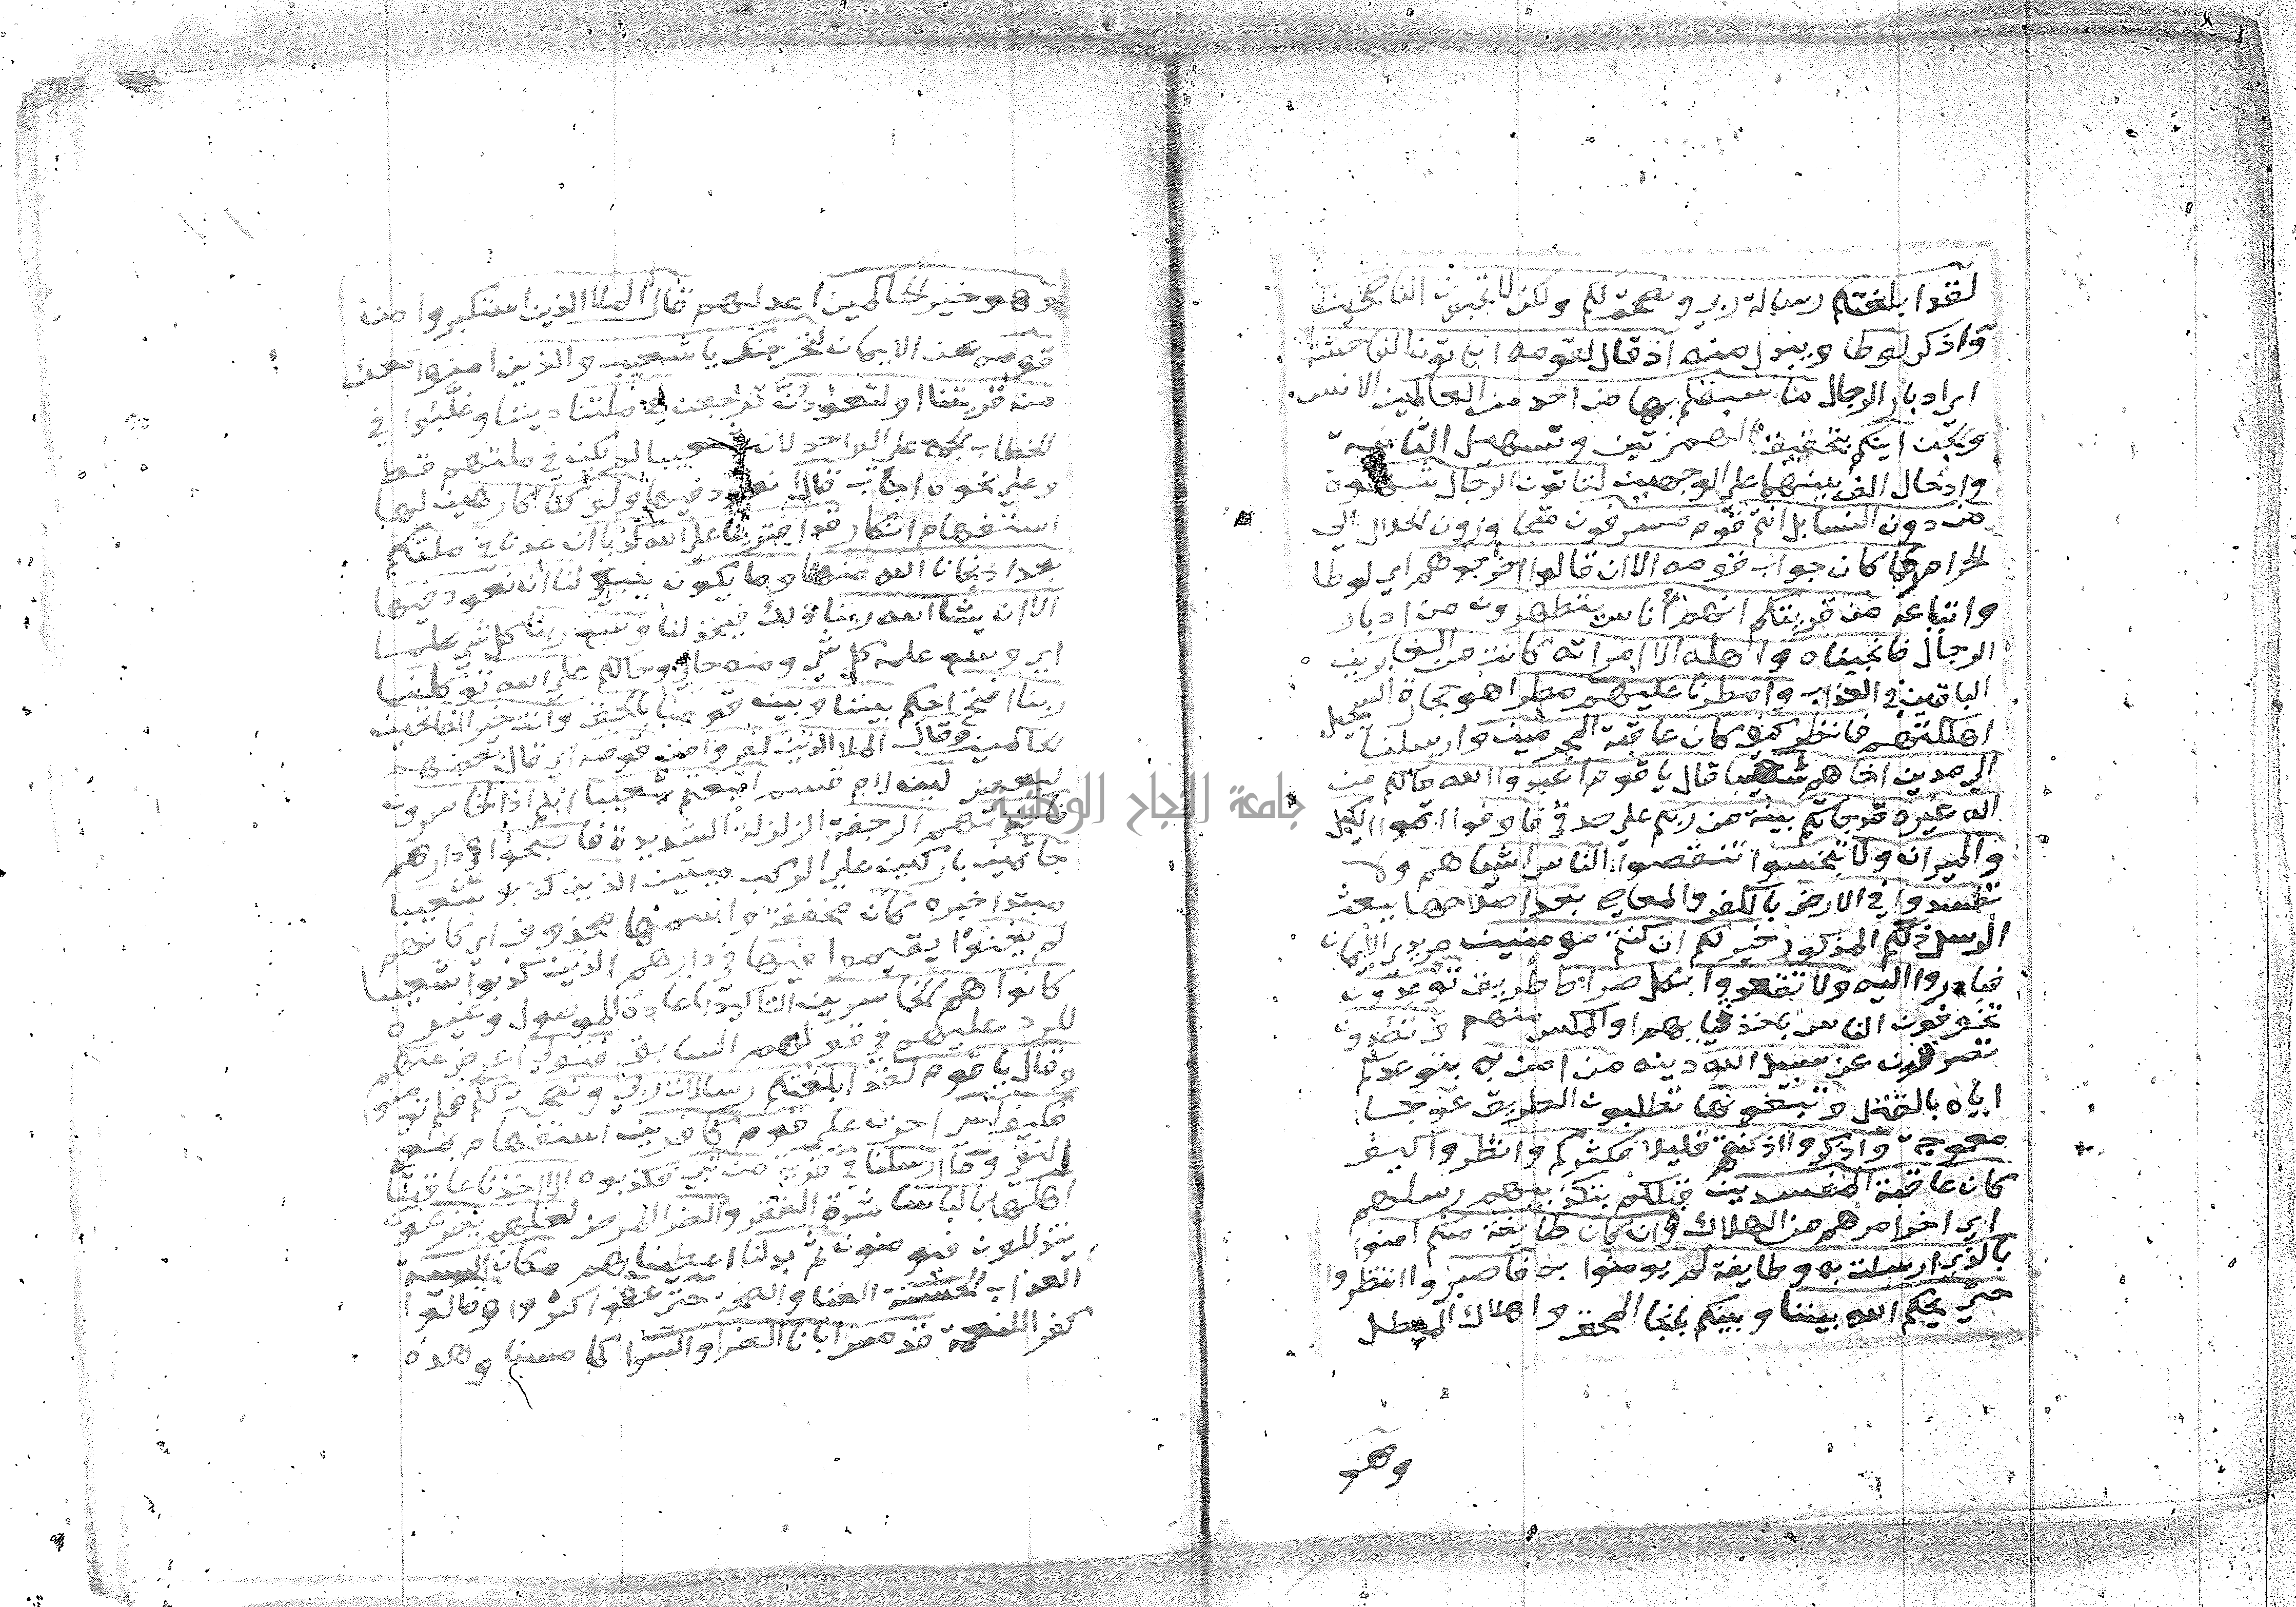 لقد ابلغتكم رسالة ربي ونصحت لكم ولكن لا تحبون الناصحين
واذكر لوطا ويبدل منه اذ قال لقومه اتاتون الفاحشة
اي ادبار الرجال ما سبقكم بها من احد من العالمين الانس
والجن اينكم بتحقيق الهمزتين وتسهيل الثانية
وادخال الف بينهما علي الوجهين لتاتون الرجال شهوة
من دون النسا بل انتم قوم مسرفون متجاوزون الحلال الي
الحرام وما كان جواب قومه الا ان قالوا اخرجوهم اي لوطا
واتباعه من قريتكم انهم اناس يتطهرون من ادبار
الرجال فانجيناه واهله الا امراته كانت من الغابرين
الباقين في العذاب وامطرنا عليهم مطرا هو حجارة السجيل
اهلكتهم فانظر كيف كان عاقبة المجرمين وارسلنا
الي مدين اخاهم شعيبا قال يا قوم اعبدوا الله مالكم من
اله غيره قد جاتكم بينة من ربكم علي صدقي فاوفوا اتموا الكيل
والميزان ولا تبخسوا تنقصوا الناس اشياهم ولا
تفسدوا في الارض بالكفر والمعاصي بعد اصلاحها ببعث
الرسل ذلكم المذكور خير لكم ان كنتم مومنين مريدي الايمان
فبادروا اليه ولا تقعدوا بكل صراط طريق توعدون
تخوفون الناس باخذ ثيابهم او المكس منهم وتصدون
تصرفون عن سبيل الله دينه من امن به بتوعدكم
اياه بالقتل وتبغونها تطلبون الطريق عوجا
معوجة واذكروا اذ كنتم قليلا فكثركم وانظروا كيف
كان عاقبة المفسدين قبلكم بتكذيبهم رسلهم
اي اخر امرهم من الهلاك وان كان طايفة منكم امنوا
بالذي ارسلت به وطايفة لم يومنوا به فاصبروا انتظروا
حتي يحكم الله بيننا وبينكم بانجا المحق واهلاك المبطل
وهو
وهو خير الحاكمين اعدلهم قال الملا الذين استكبروا من
قومه عن الايمان لنخرجنك يا شعيب والذين امنوا معك
من قريتنا او لتعودن ترجعن في ملتنا ديننا وغلبوا في
الخطاب الجمع علي الواحد لان شعيبا لم يكن في ملتهم قط
وعلي نحوه اجاب قال انعود فيها ولو كنا كارهين لها
استفهام انكار قد افترينا علي الله كذبا ان عدنا في ملتكم
بعد اذ نجانا الله منها وما يكون ينبغي لنا ان نعود فيها
الا ان يشا الله ربنا ذلك فيخذلنا وسع ربنا كل شي علما
اي وسع علمه كل شي ومنه حالي وحالكم علي الله توكلنا
ربنا افتح احكم بيننا وبين قومنا بالحق وانت خير الفاتحين
الحاكمين وقال الملا الذين كفروا من قومه اي قال بعضهم
لبعض لين لام قسم اتبعتم شعيبا انكم اذا لخاسرون
فاخذتهم الرجفة الزلزلة الشديدة فاصبحوا في دارهم
جاثمين باركين علي الركب ميتين الذين كذبوا شعيبا
مبتدا خبره كان مخففة واسمها محذوف اي كانهم
لم يغنوا يقيموا فيها في دارهم الذين كذبوا شعيبا
كانوا هم الخاسرين التاكيد باعادة الموصول وغيره
للرد عليهم في قولهم السابق فتولي اعرض عنهم
وقال يا قوم لقد ابلغتكم رسالات ربي ونصحت لكم فلم تومنوا
فكيف اسي احزن علي قوم كافرين استفهام بمعني
النفي وما ارسلنا في قرية من نبي فكذبوه الا اخذنا عاقبنا
اهلها بالباسا شدة الفقر والضرا المرض لعلهم يضرعون
يتذللون فيومنون ثم بدلنا اعطيناهم مكان السيية
العذاب الحسنة الغنا والصحة حتي عفوا كثروا وقالوا
كفرا للنعمة قد مس ابانا الضرا والسرا كما مسنا وهذه
جامعة النجاح الوطنية